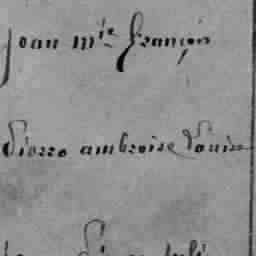 Jean m.ie François
Pierre ambroise Louis